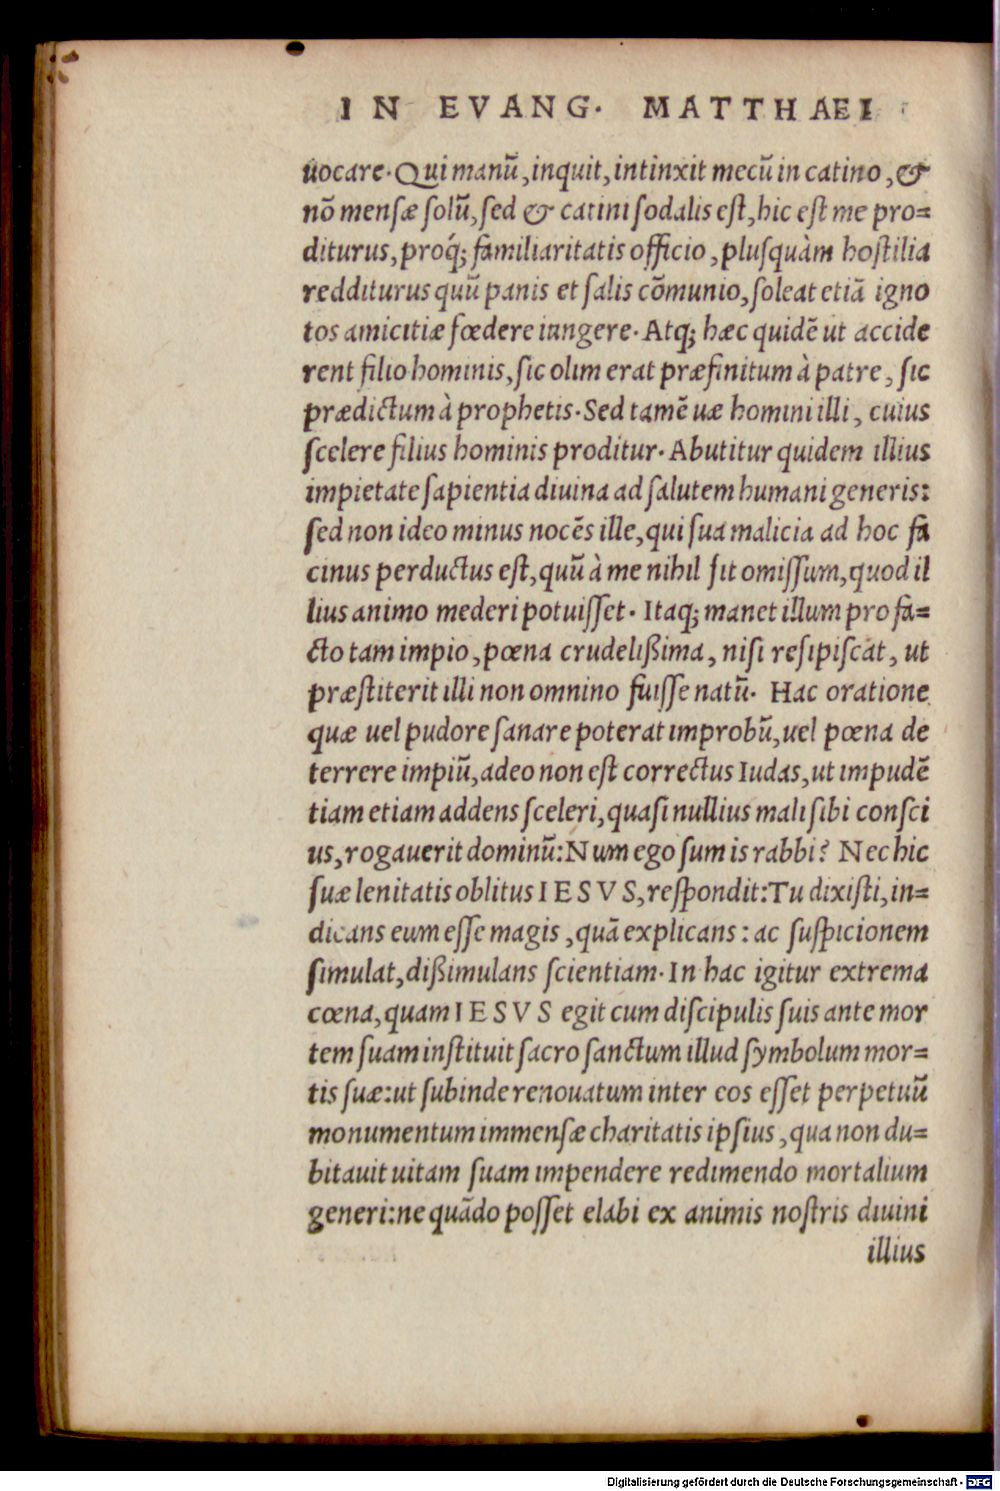 IN EVANG. MATTHAEI
uocare. Qui manũ, inquit, intinxit mecũ in catino, &
nõ mensæ solũ, sed & catini sodalis est, hic est me pro=
diturus, proq́; familiaritatis officio, plusquàm hostilia
redditurus quũ panis et salis cõmunio, soleat etiã igno
tos amicitiæ fœdere iungere. Atq; hæc quidẽ ut accide
rent filio hominis, sic olim erat præfinitum à patre, sic
prædictum à prophetis. Sed tamẽ uæ homini illi, cuius
scelere filius hominis proditur. Abutitur quidem illius
impietate sapientia diuina ad salutem humani generis:
sed non ideo minus nocẽs ille, qui sua malicia ad hoc fa
cinus perductus est, quũ à me nihil sit omissum, quod il
lius animo mederi potuisset. Itaq; manet illum pro fa=
cto tam impio, pœna crudelißima, nisi resipiscat, ut
præstiterit illi non omnino fuisse natũ. Hac oratione
quæ uel pudore sanare poterat improbũ, uel pœna de
terrere impiũ, adeo non est correctus Iudas, ut impudẽ
tiam etiam addens sceleri, quasi nullius mali sibi consci
us, rogauerit dominũ: Num ego sum is rabbi? Nec hic
suæ lenitatis oblitus IESVS, respondit: Tu dixisti, in=
dicans eum esse magis, quã explicans: ac suspicionem
simulat, dißimulans scientiam. In hac igitur extrema
cœna, quam IESVS egit cum discipulis suis ante mor
tem suam instituit sacro sanctum illud symbolum mor=
tis suæ: ut subinde renouatum inter eos esset perpetuũ
monumentum immensæ charitatis ipsius, qua non du=
bitauit uitam suam impendere redimendo mortalium
generi: ne quãdo posset elabi ex animis nostris diuini
illius
Digitalisierung gefördert durch die Deutsche Forschungsgemeinschaft - DFG